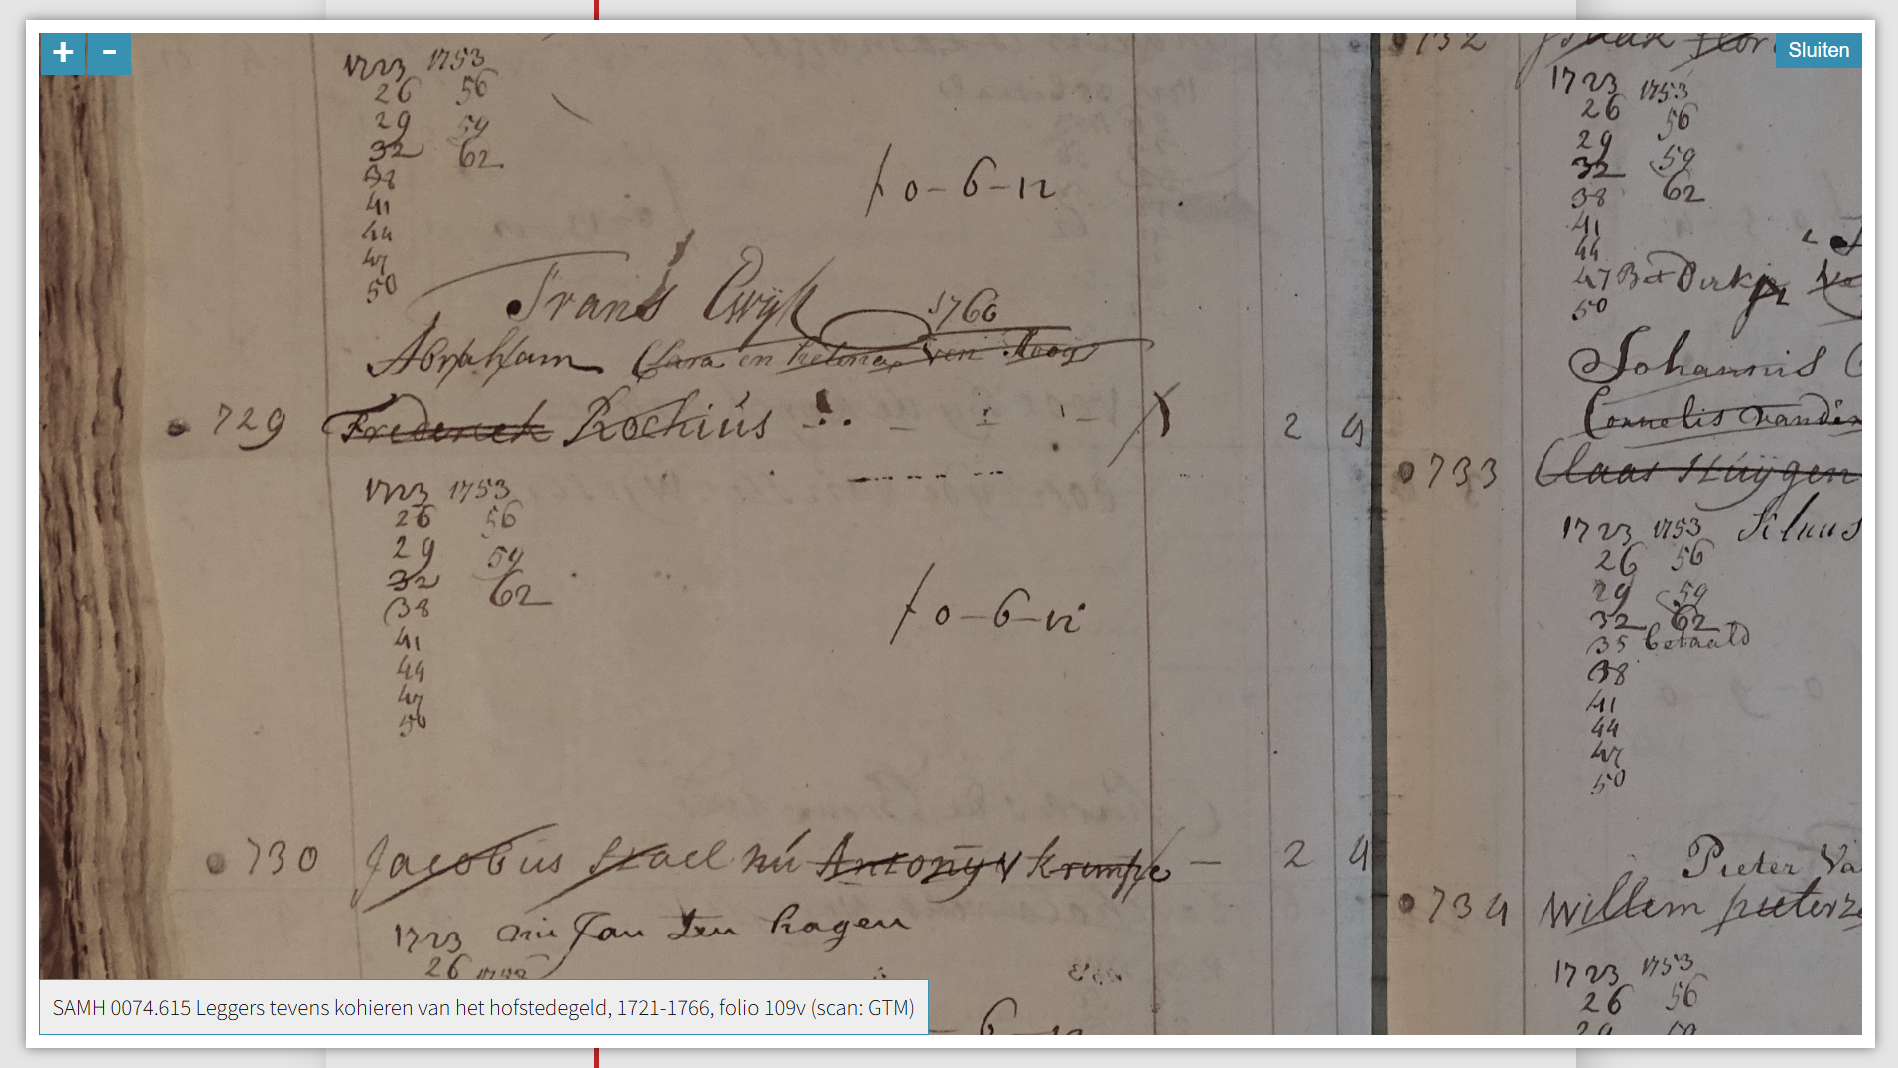 + -
Sluiten
1723 1753
26 56
29 59
32 62
38
41
44
47
50
f 0-6-12
Frans Ewijk 1760
Abraham Clara en van Hoogh
729 Frederick Rochius 2 4
1723 1753
26 56
29 59
32 62
38
41
44
47
50
f 0-6-12
730 Jacobus nú Antonÿ V krimpe 2 4
1723 nu Jan Ten hagen
26
6-12
732
1723 1753
26 56
29 59
32 62
38
41
44
47
50
Johannis
Cornelis vanden
733 Claas Húÿgen
1723 1753 Klaas
26 56
29 59
32 62
35 betaald
38
41
44
47
50
Pieter Va
734 Willem pieterze
1723 1753
26 56
29 59
SAMH 0074.615 Leggers tevens kohieren van het hofstedegeld, 1721-1766, folio 109v (scan: GTM)